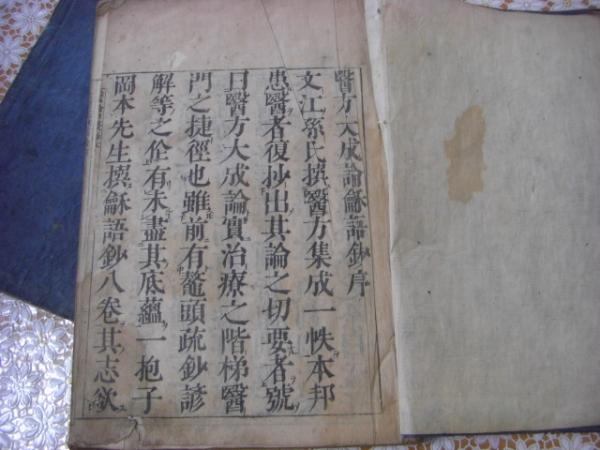 醫方大成論龢語鈔序
文江孫氏撰醫方集成一帙本邦
患醫者復抄出其論之切要者號
曰醫方大成論實治療之階梯醫
門之捷徑也雖前有鼇頭疏鈔諺
解等之作有未盡其底蘊一抱子
岡本先生撰龢語鈔八卷其志欲